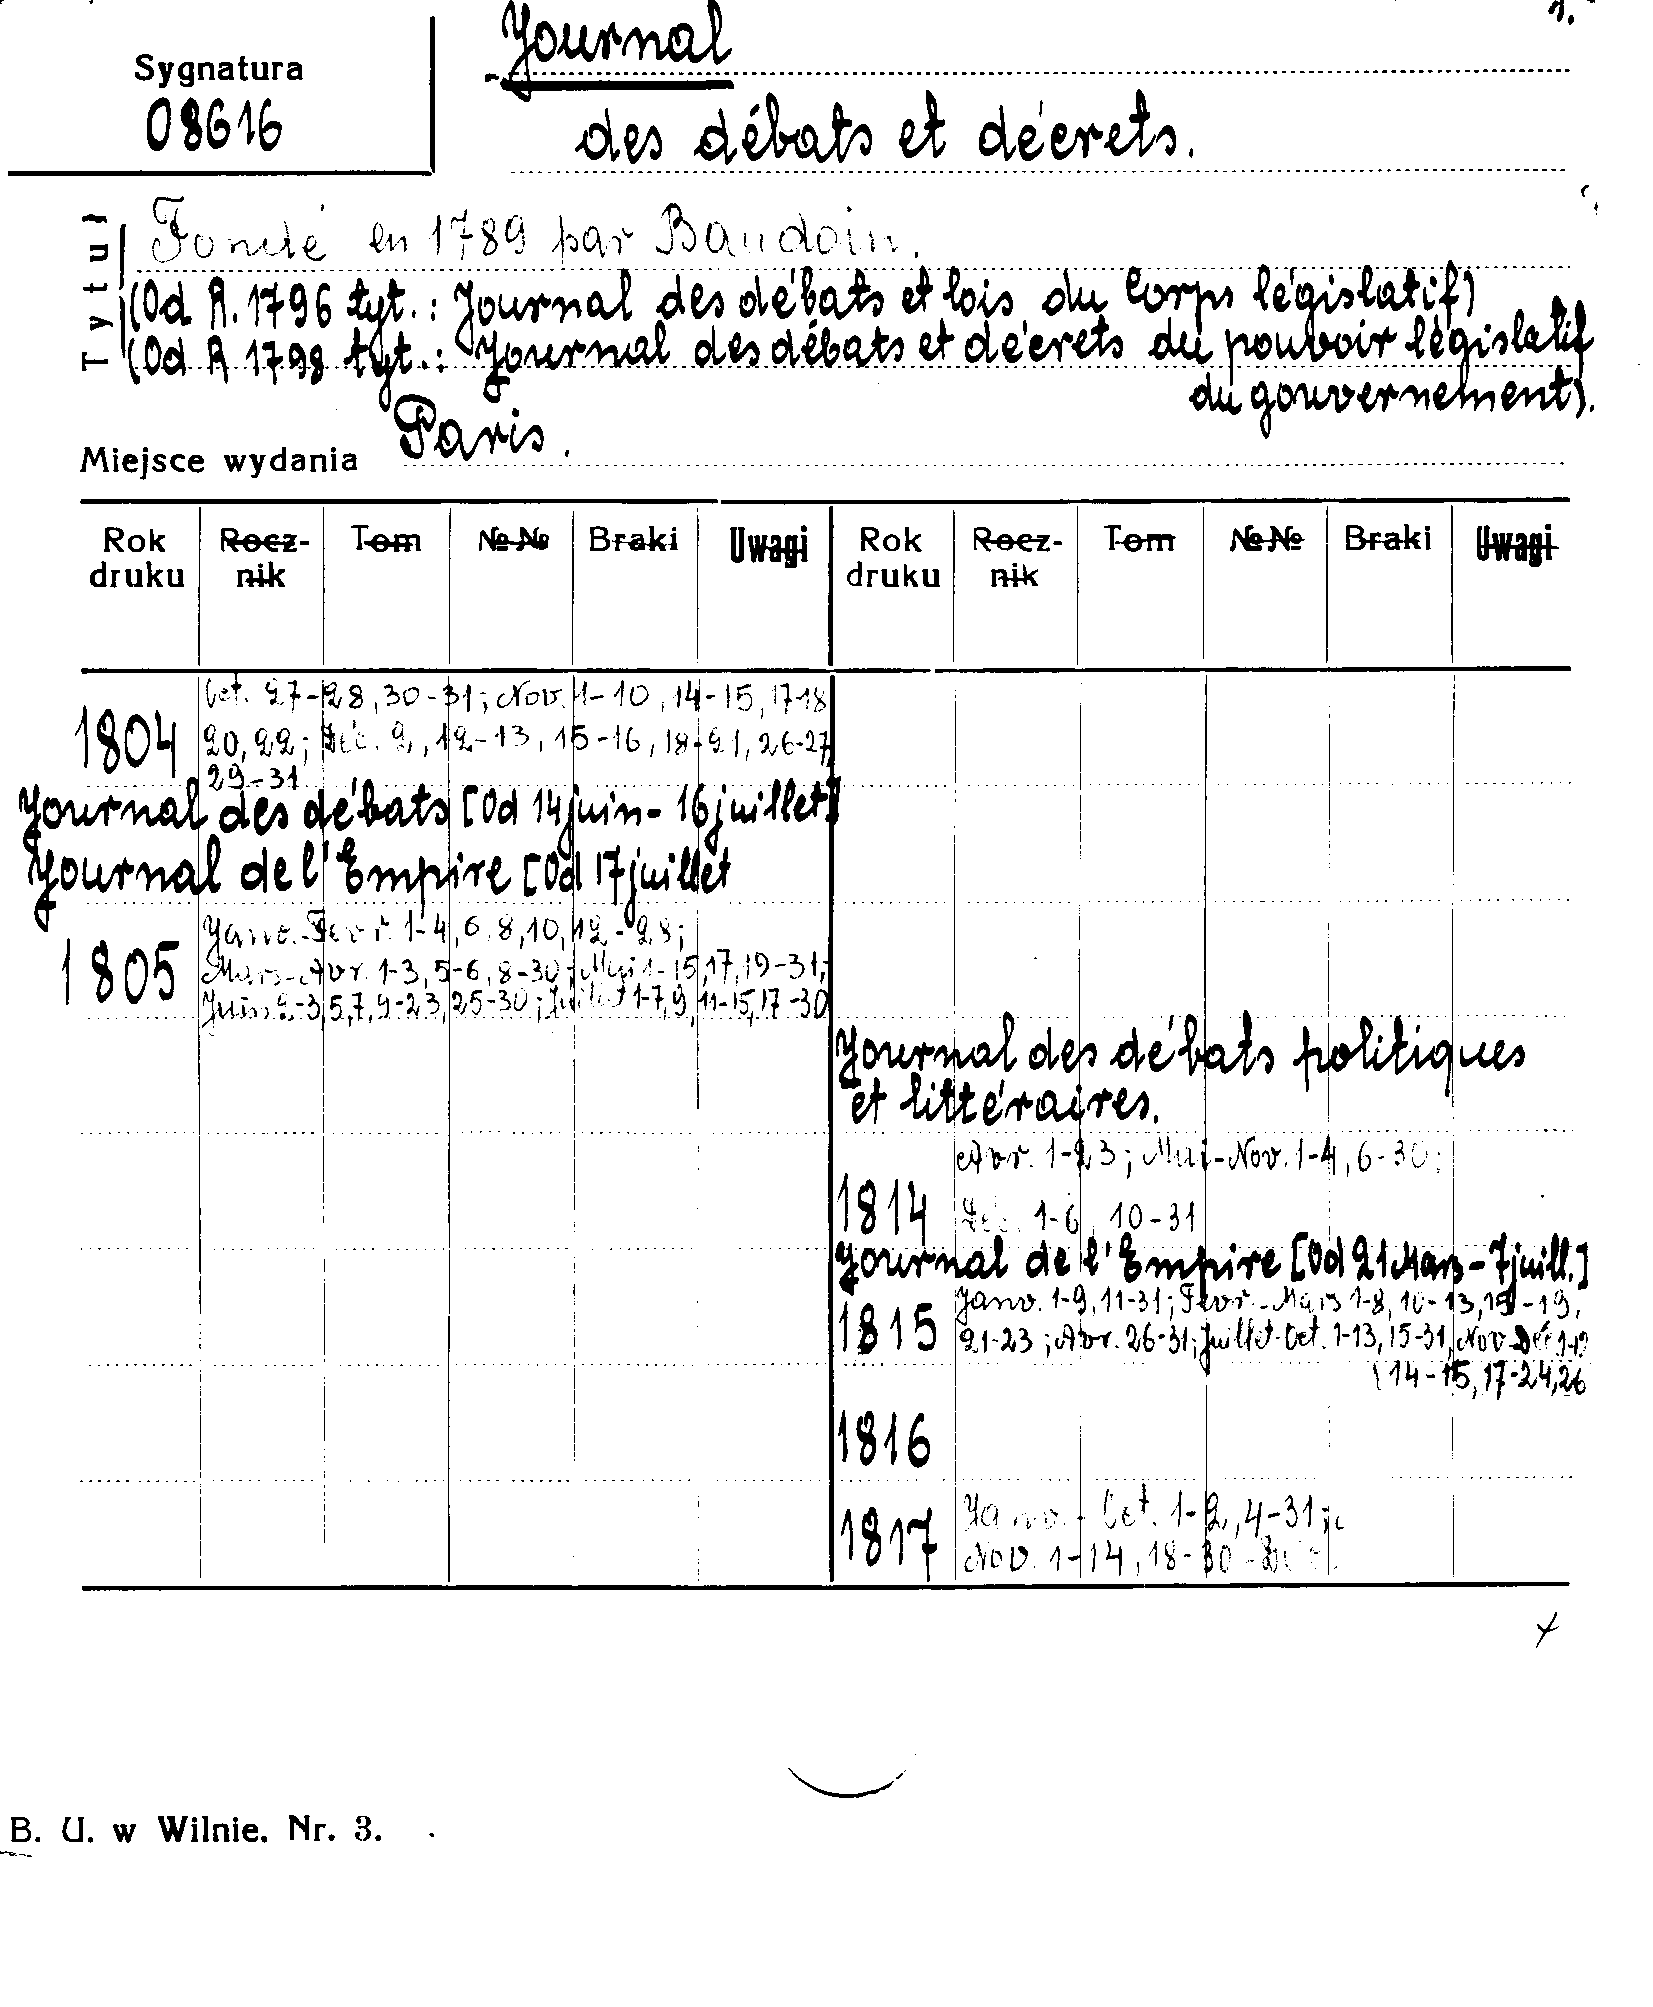 1.
Sygnatura
08616
Journal
des débats et décrets.
Tytuł
Fondé en 1789 par Baudoin.
(Od R. 1796 tyt.: Journal des débats et lois du Corps législatif)
(Od R 1798 tyt.: Journal des débats et décrets du pouvoir législatif
du gouvernement).
Miejsce wydania Paris.
Rok druku Rocz-nik Tom №№ Braki Uwagi Rok druku Rocz-nik Tom №№ Braki Uwagi
Oct. 27-28, 30-31; Nov. 1-10, 14-15, 17-18
1804 20, 22; Déc. 2, 12-13, 15-16, 18-21, 26-27
29-31
Journal des débats [Od 14 juin - 16 juillet]
Journal de l'Empire [Od 17 juillet
Janv.-Fevr. 1-4, 6, 8, 10, 12-28;
1805 Mars-Avr. 1-3, 5-6, 8-30; Mai 1-15, 17, 19-31;
Juin 2-3, 5, 7, 9-23, 25-30; Juillet 1-7, 9, 11-15, 17-30
Journal des débats politiques
et littéraires.
Avr. 1-23; Mai-Nov. 1-4, 6-30;
1814 Déc. 1-6, 10-31
Journal de l'Empire [Od 21 Mars - 7 juill.]
Janv. 1-9, 11-31; Fevr.-Mars 1-8, 10-13, 15-19,
1815 21-23; Avr. 26-31; Juillet-Oct. 1-13, 15-31, Nov-Déc 1-12
14-15, 17-24, 26
1816
1817 Janv.-Oct. 1-2, 4-31;
Nov. 1-14, 18-30-Déc.
B. U. w Wilnie. Nr. 3.